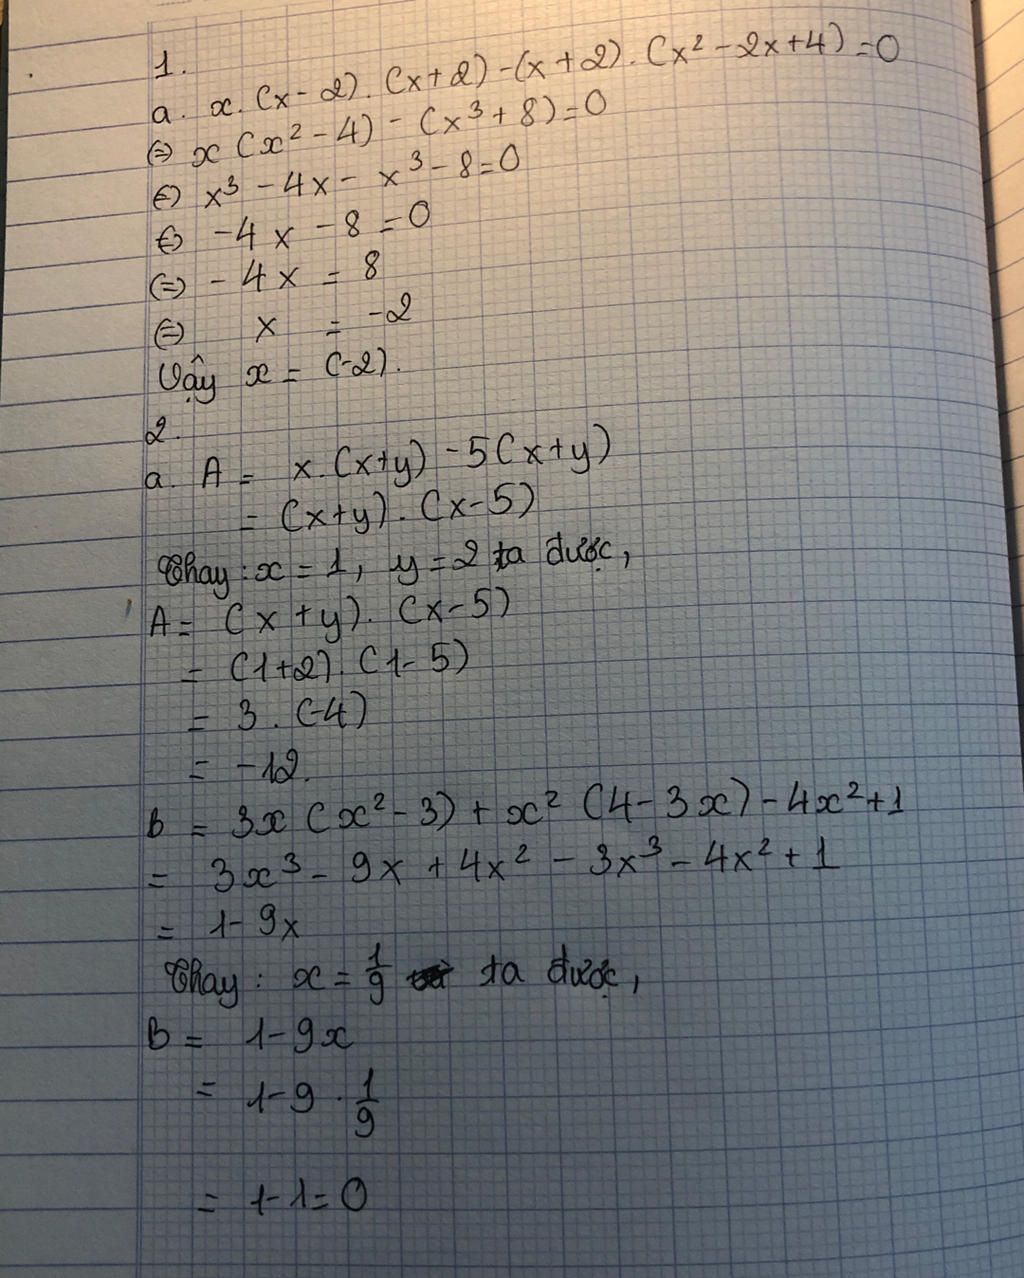 1.
a. x.(x-2).(x+2)-(x+2).(x²-2x+4)=0
(=) x(x²-4)-(x³+8)=0
(=) x³-4x-x³-8=0
(=) -4x-8=0
(=) -4x=8
(=) x=-2
Vậy x=(-2).
2.
a. A= x.(x+y)-5(x+y)
= (x+y).(x-5)
Thay: x=1, y=2 ta được,
A= (x+y).(x-5)
= (1+2).(1-5)
= 3.(-4)
= -12.
B = 3x(x²-3)+x²(4-3x)-4x²+1
= 3x³-9x+4x²-3x³-4x²+1
= 1-9x
Thay: x=1/9 ta được,
B= 1-9x
= 1-9.1/9
= 1-1=0